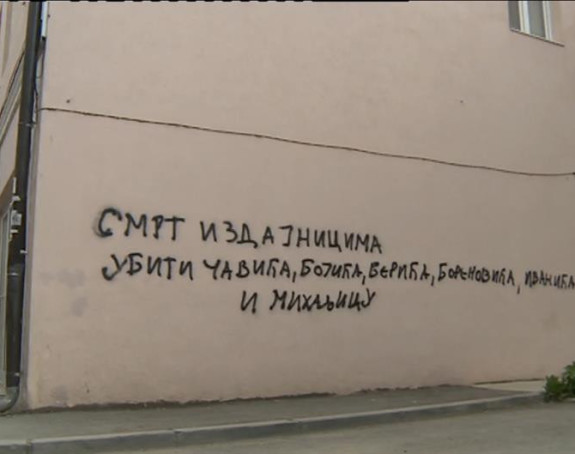 СМРТ ИЗДАЈНИЦИМА
УБИТИ ЧАВИЋА, БОЈИЋА, БЕРИЋА, БОРЕНОВИЋА, ИВАНИЋА
И МИХАЉИЦУ